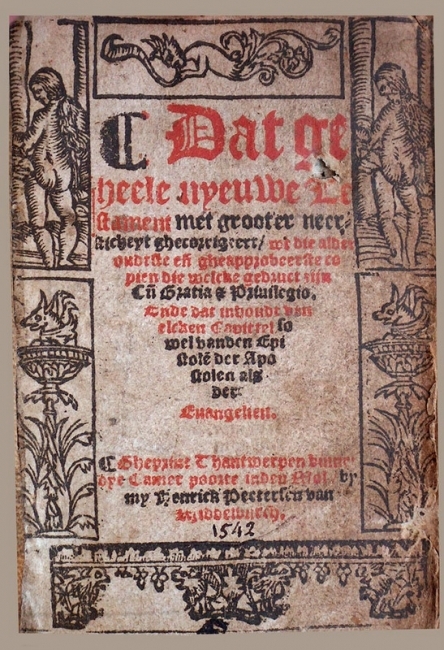 Dat ge
heele nyeuwe Te
stament met grooter neer/
stickeyt ghecorrigeert/ wt die alder
oudtste en̄ gheapprobeerste co
pien die welcke gedruct zijn
Cū Gratia & Priuilegio.
Ende dat inhoudt van
elcken Capittel so
wel vanden Epi
stolē der Apo
stolen als
der
Euangelien.
Gheprint Thantwerpen binnē
dye Camer poorte inden Mol. by
my Henrick Peetersen van
Middelburch.
1542